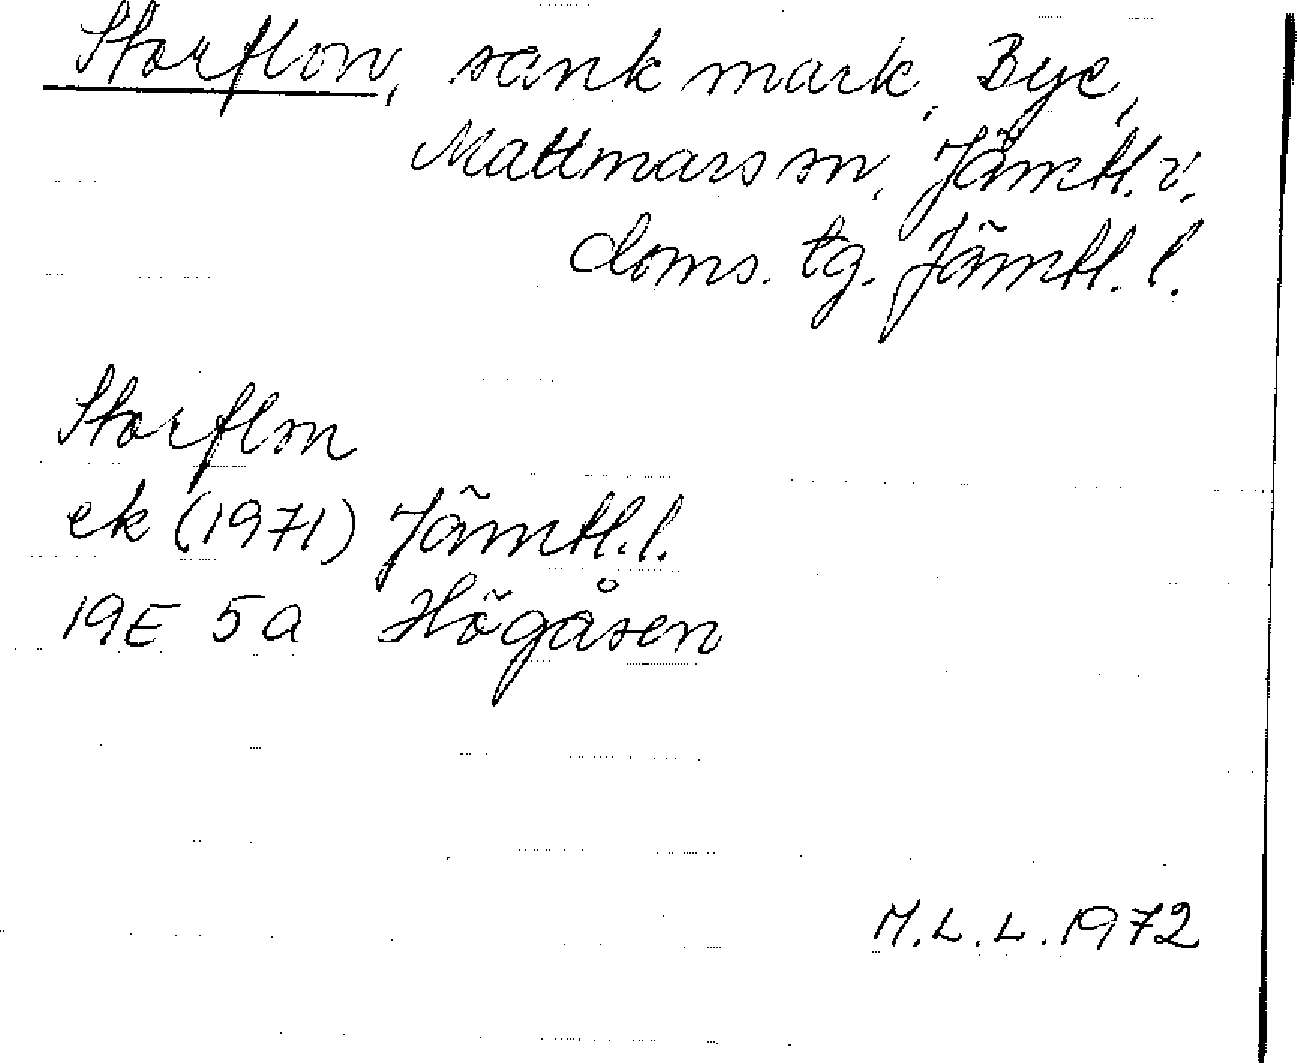 Storflon, sank mark, Bye,
Mattmars sn, Jämtl. v.
doms. tg. Jämtl. l.
Storflon
ek (1971) Jämtl. l.
19E 5a Högåsen
M.L.L. 1972